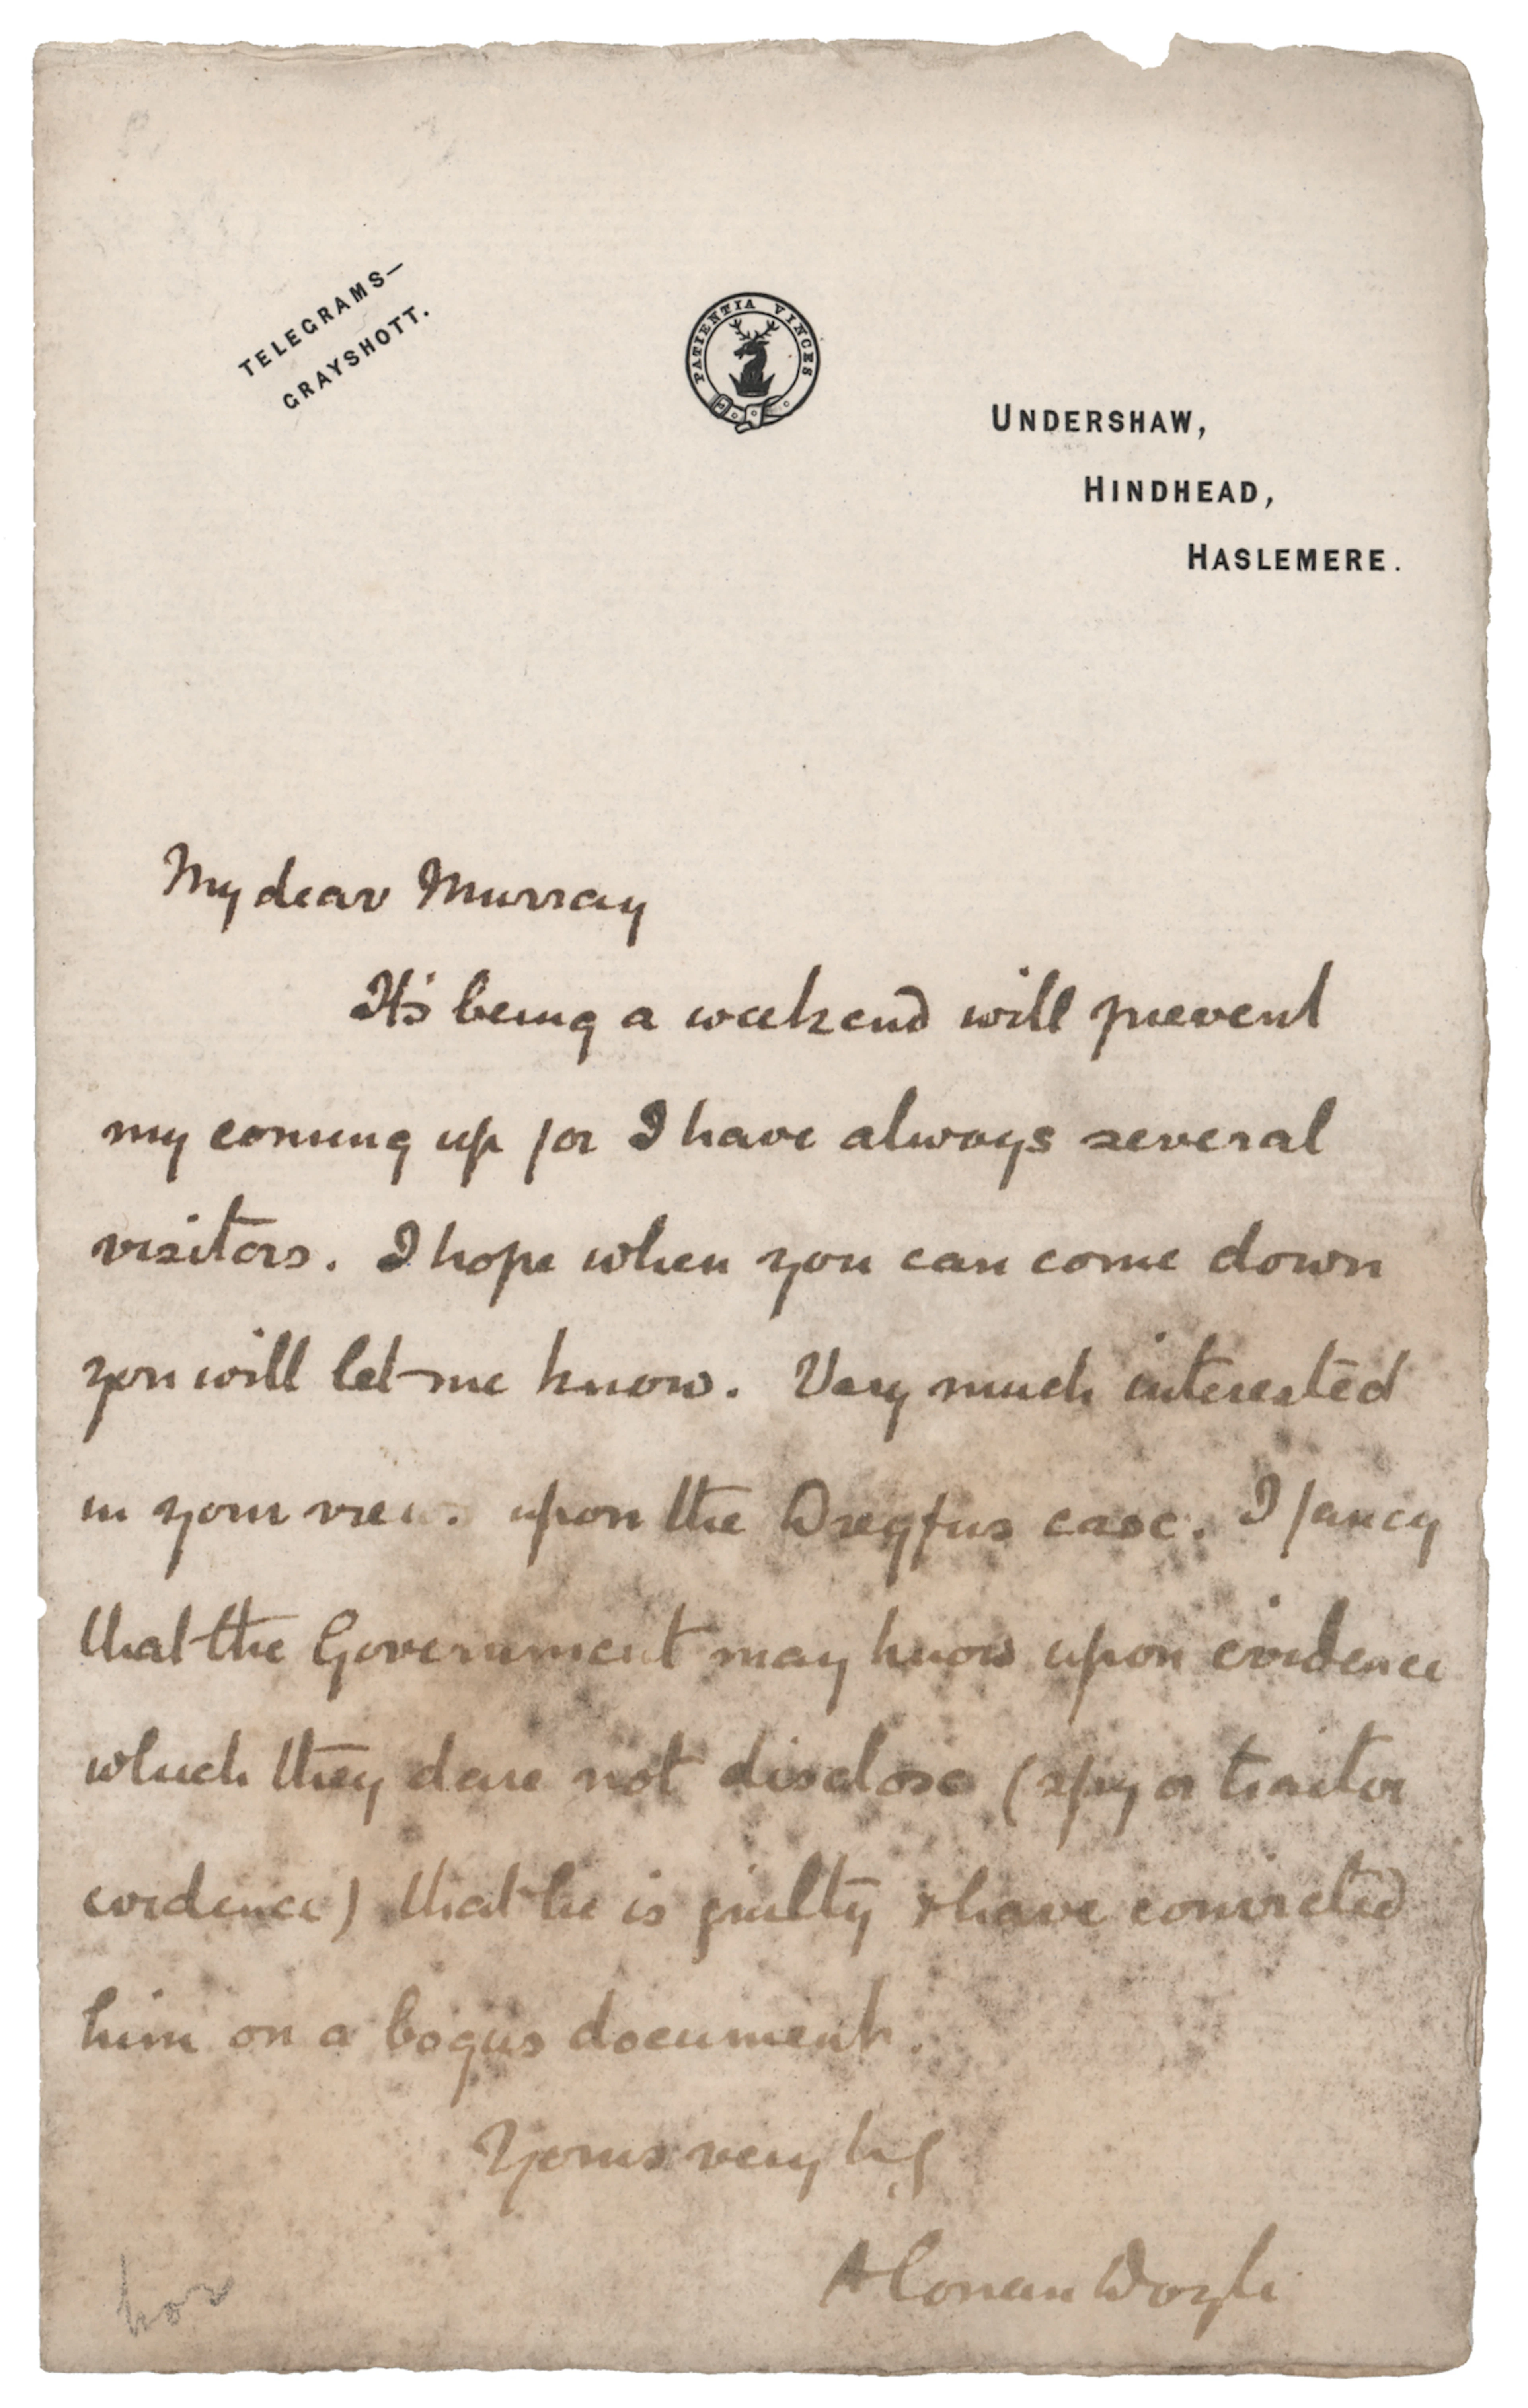 TELEGRAMS—
GRAYSHOTT.
PATIENTIA VINCES
UNDERSHAW,
HINDHEAD,
HASLEMERE.
My dear Murray
It's being a weekend will prevent
my coming up for I have always several
visitors. I hope when you can come down
you will let me know. Very much interested
in your upon the Dreyfus case. I fancy
that the Government may know upon evidence
which they dare not disclose (spy or traitor
evidence) that he is guilty & have convicted
him on a bogus document.
Yours very
A Conan Doyle